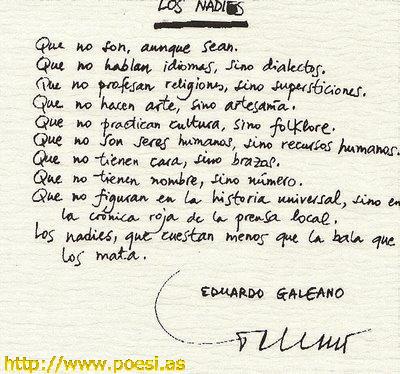 LOS NADIES
Que no son, aunque sean.
Que no hablan idiomas, sino dialectos.
Que no profesan religiones, sino supersticiones.
Que no hacen arte, sino artesanía.
Que no practican cultura, sino folklore.
Que no son seres humanos, sino recursos humanos.
Que no tienen cara, sino brazos.
Que no tienen nombre, sino número.
Que no figuran en la historia universal, sino en
la crónica roja de la prensa local.
Los nadies, que cuestan menos que la bala que
los mata.
EDUARDO GALEANO
http://www.poesi.as